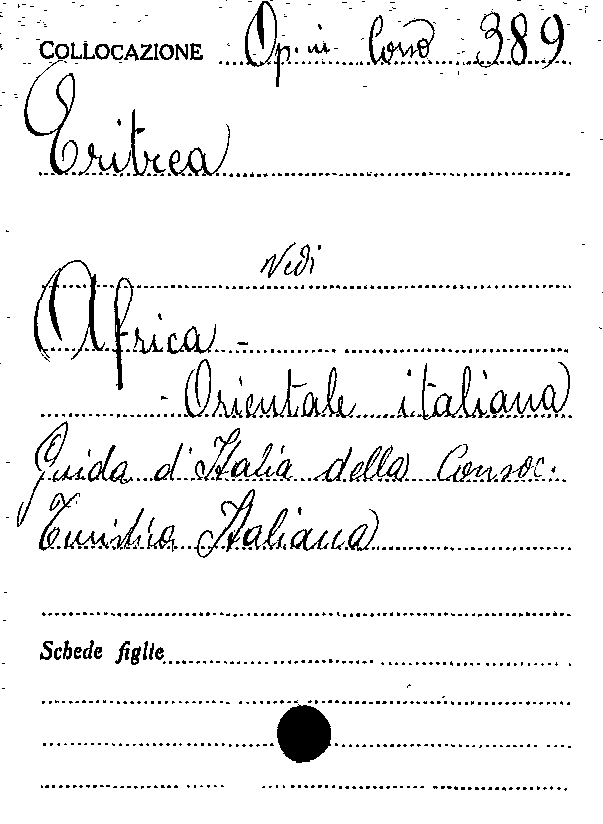 COLLOCAZIONE Op. in Corso 389
Eritrea
Vedi
Africa -
- Orientale italiana
Guida d'Italia della Consoc.
Turistica Italiana
Schede figlie